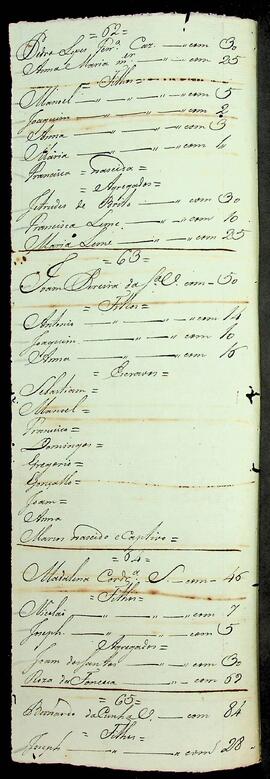 = 62 =
Pedro Lopes Ferr.ª Caz. — com 30
Anna Maria m.er — com 25
= Filhos =
Manoel — com 5
Joaquim — com 2
Anna — com 3
Maria — com 4
Francisca = nascida =
= Agregados =
de — com 30
Francisca Leme — com 10
Maria Leme — com 25
= 63 =
Joam Pereira da S.ª V. — com 50
= Filhos =
Antonio — com 14
Joaquim — com 10
Anna — com 16
= Escravos =
Sebastiam =
Manoel =
Francisco =
Domingos =
Gregorio =
Gonçallo =
Joam =
Anna
Marcos nascido e Captivo =
= 64 =
Madalena Cord.ª S. — com 46
= Filhos =
Nicolai — com 7
Joseph — com 5
= Agregados =
Joam dos Santos — com 30
Roza da Fonceca — com 62
= 65 =
Bernardo da Cunha V. — com 84
= Filhos =
Joseph — com 28